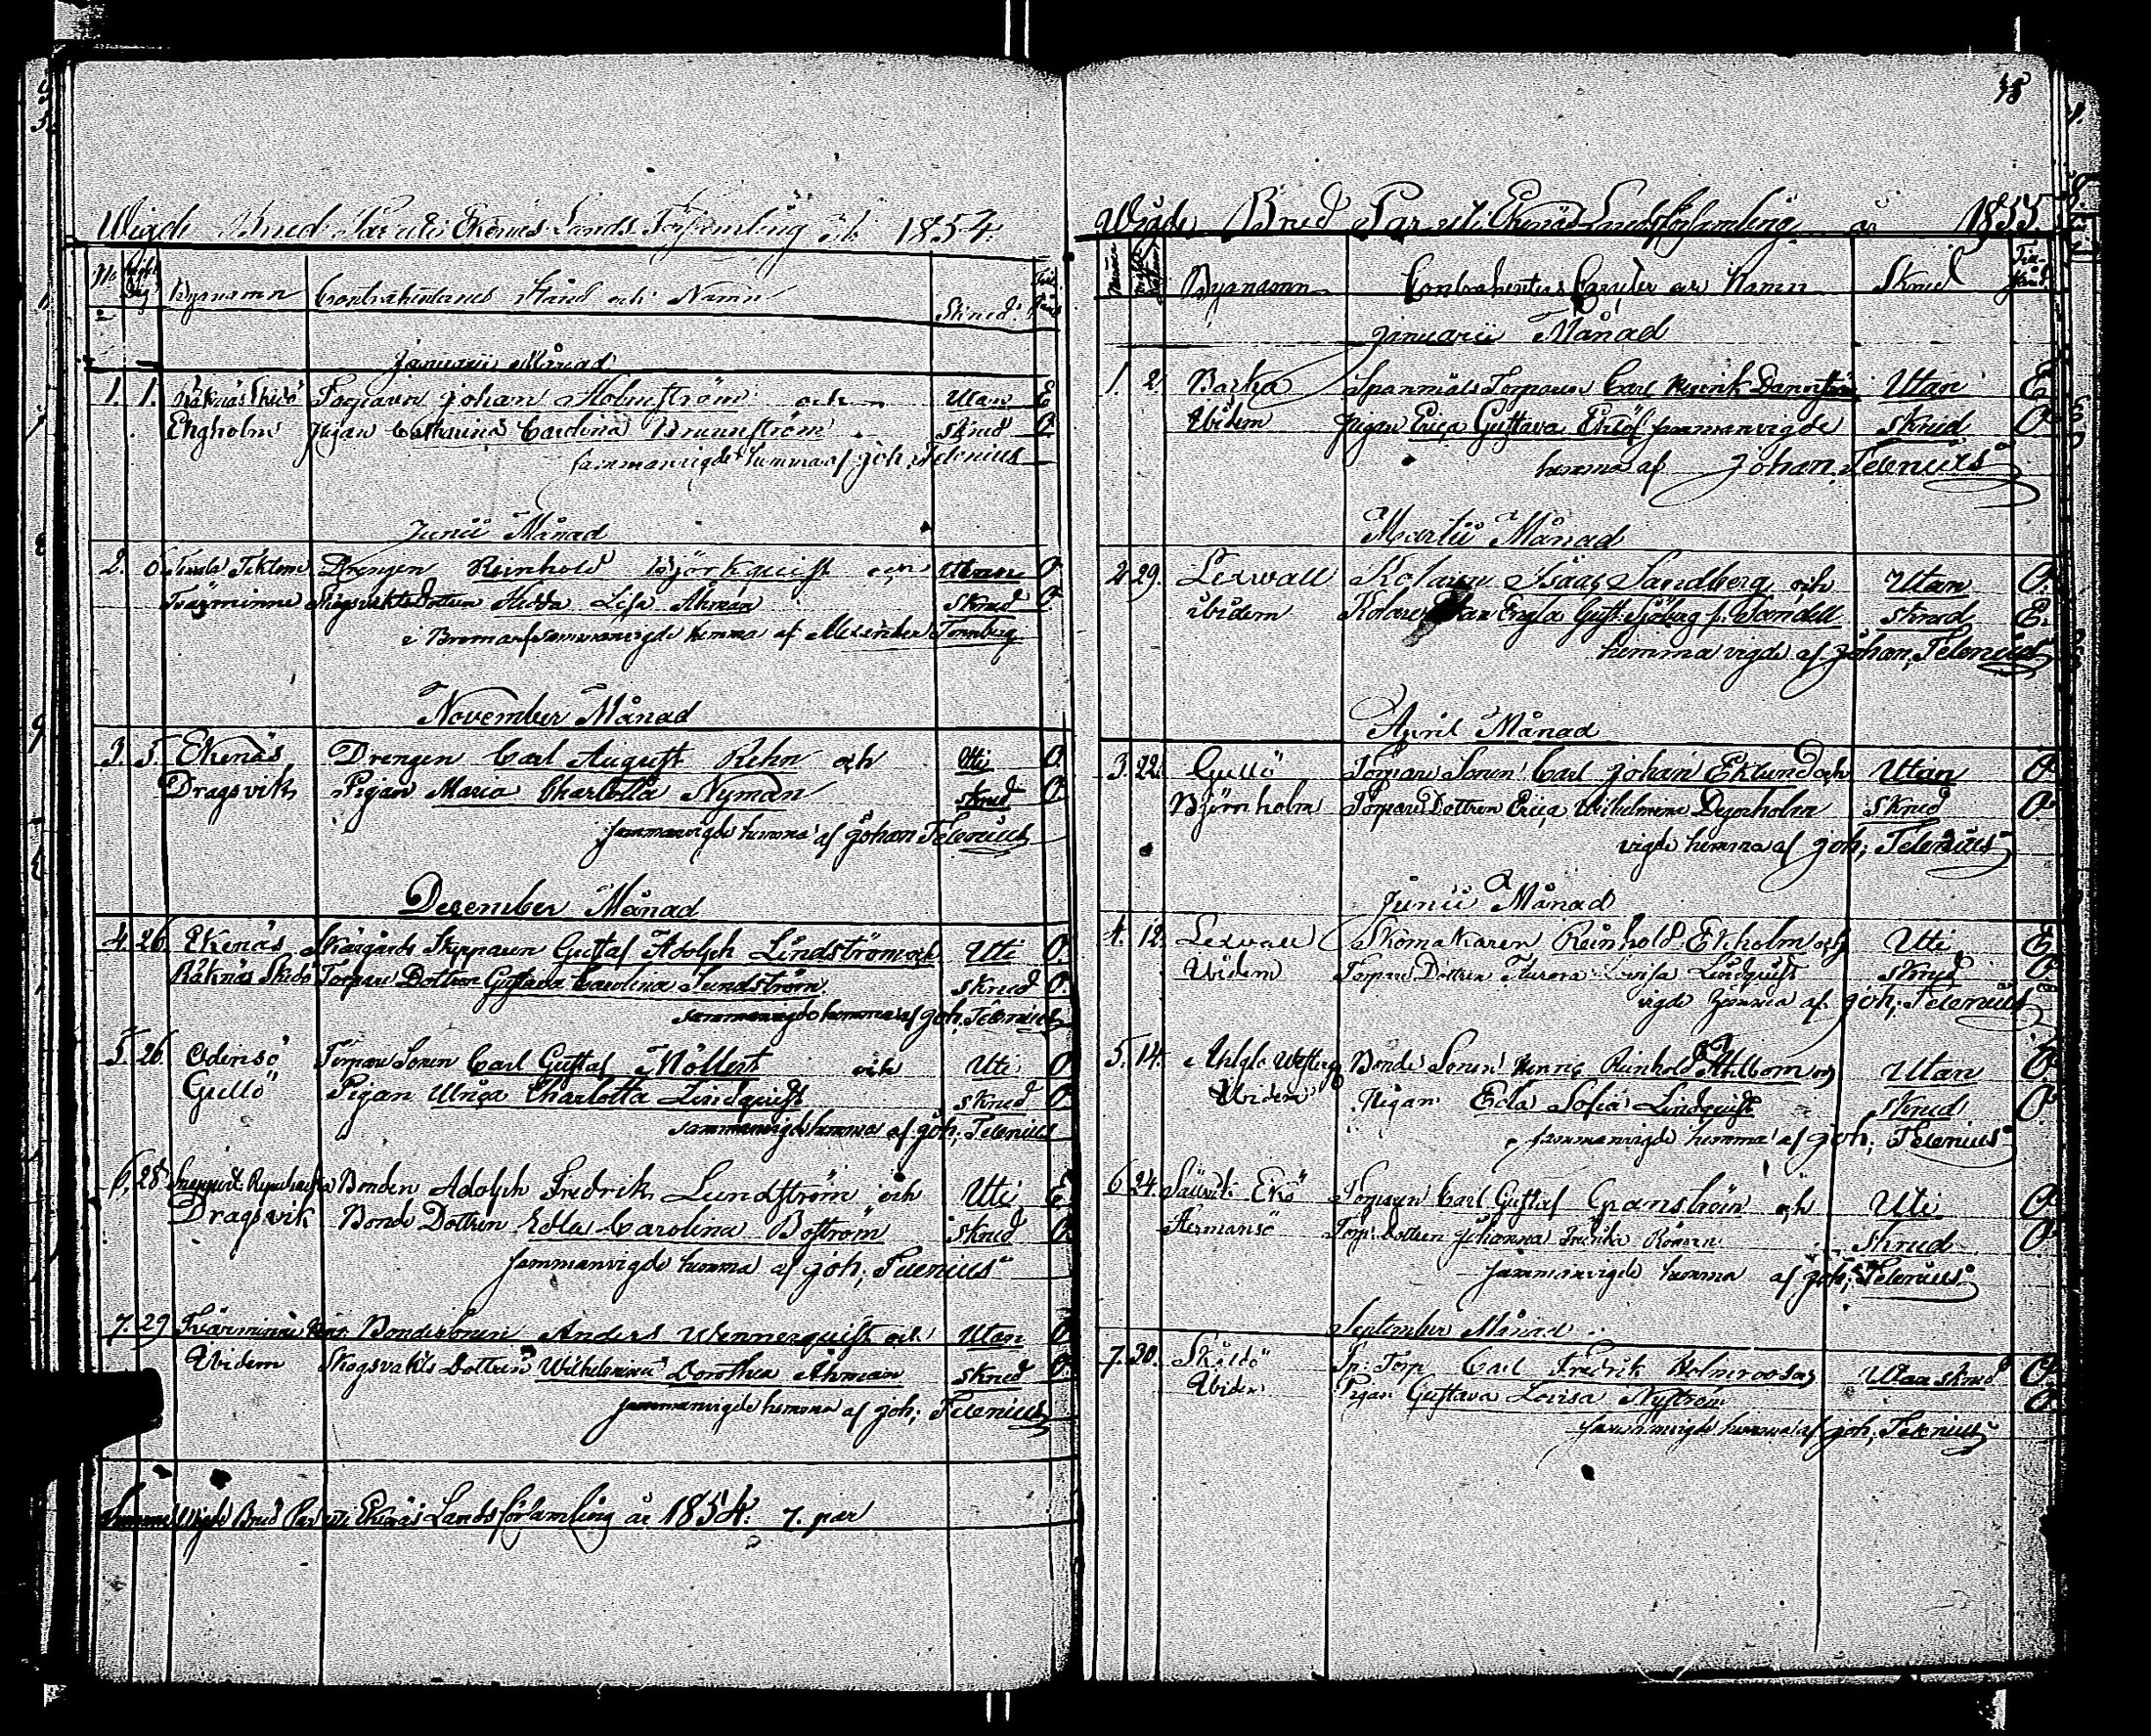 Wigde Brud Par uti Ekenäs Lands Församling år 1854.
No Byanamn Contrahentернas Stånd och Namn Skrud
Januarii Månad
1. 1. Råknäs Skidö Torparen Johan Holmström och Utan E
Ekgholm Pigan Catharina Carolina Brunnström Skrud O
sammanvigde hemma af Joh, Telenius
Junii Månad
2. 6 Drengen Reinhold Björkquist och Utan O
Tvärminne Skogsvakts Dottren Hedda Lisa Åhman Skrud O.
i Bromarf sammanvigde hemma af
November Månad
3. 5. Ekenäs Drengen Carl August Rehn och Uti O
Dragsvik Pigan Maria Charlotta Nyman skrud O
sammanvigde hemma af Johan Telenius
December Månad
4. 26. Ekenäs Skärgårds Skepparen Gustaf Adolph Lindström och Uti O.
Råknäs Skidö Torpare Dottren Gustava Carolina Sundström skrud O.
sammanvigde hemma af Joh, Telenius
5. 26. Odensö Torpare Sonen Carl Gustaf Möllert och Uti O.
Gullö Pigan Ulrica Charlotta Lindquist skrud O.
sammanvigde hemma af Joh, Telenius
6. 28 Bonden Adolph Fredrik Lundström och Uti E
Dragsvik Bonde Dottren Edla Carolina Boström skrud O
sammanvigde hemma af Joh, Telenius
7. 29 Tvärminne Bondesonen Anders Wennerquist och Utan O
Ibidem Skogsvakts Dottren Wilhelmina Dorothea Åhman skrud O.
sammanvigde hemma af Joh; Telenius
Summa Wigde Brud Par uti Ekenäs Landsförsamling år 1854. 7. par
Wigde Brud Par uti Ekenäs Landsförsamling år 1855.
Byanamn Contrahenters Caracter och Namn Skrud
Januarii Månad
1. 2. Barka Spanmåls Torparen Carl Henrik Utan E
Ibidem Pigan Erica Gustava Eklöf sammanvigde Skrud O
hemma af Johan, Telenius
Martii Månad
2. 29. Lexvall Kolaren Isaac Sandberg och Utan O
ibidem Kolare Enkan Engla Gust: Sjöberg f. Wandell skrud E.
hemma vigde af Johan, Telenius
April Månad
3. 22. Gullö Torpare Sonen Carl Johan Eklund och Utan O
Björnholm Torpare Dottren Erica Wilhelmina Degerholm skrud O
vigde hemma af Joh; Telenius
Junii Månad
4. 12. Lexvall Skomakaren Reinhold Ekholm och Uti E
Ibidem Torpare Dottren Aurora Lovisa Lindquist skrud O
vigde hemma af Joh; Telenius
5. 14. Bonde Sonen Henric Reinhold Ahlbom och Utan O
Ibidem Pigan Edla Sofia Lindquist skrud O
sammanvigde hemma af Joh. Telenius
6 24. Sällvik Ekö Torparen Carl Gustaf Granström och Uti O
Hermansö Torp: Dottren Johanna Fredrika Röman Skrud O
sammanvigde hemma af Joh; Telenius
September Månad
7. 30. Skåldö Sp: Torp Carl Fredrik Holmroos och Utan skrud O.
Ibidem Pigan Gustava Lovisa Nyström O
sammanvigde hemma af Joh; Telenius